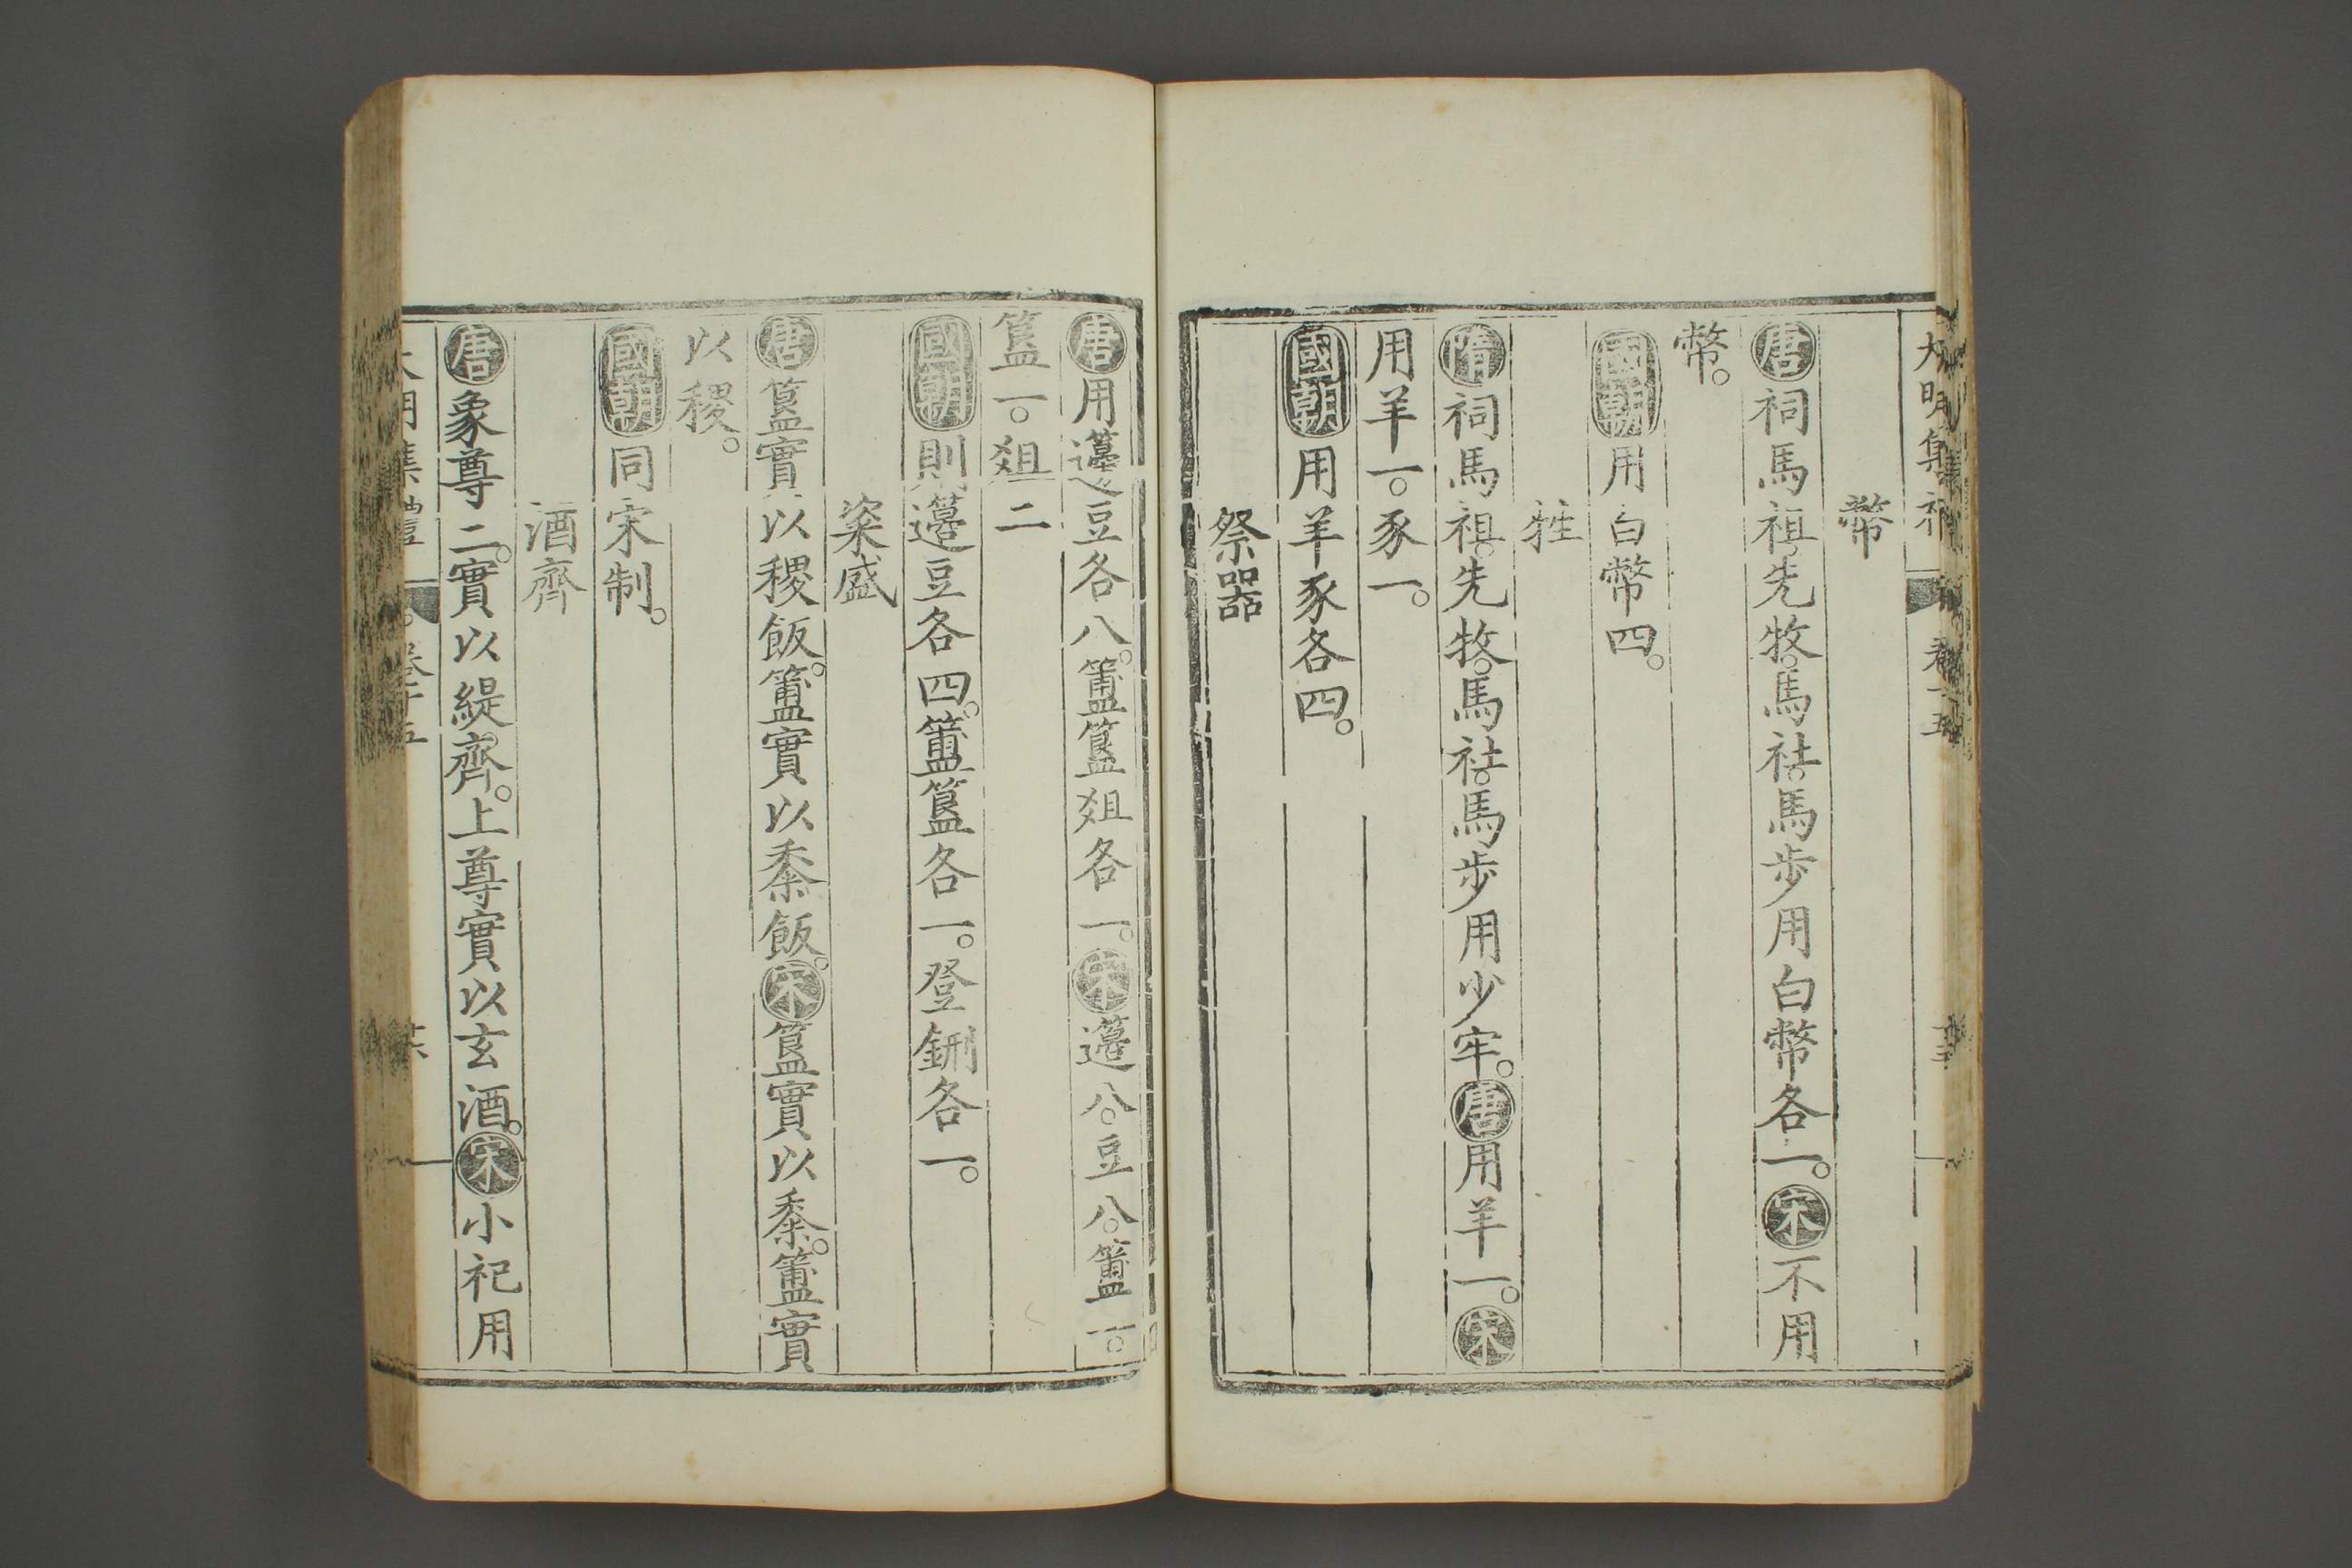 大明集禮 卷十五
幣
唐祠馬祖。先牧。馬社。馬步用白幣各一。宋不用
幣。
國朝用白幣四。
牲
隋祠馬祖。先牧。馬社。馬步用少牢。唐用羊一。宋
用羊一。豕一。
國朝用羊豕各四。
祭器
唐用籩豆各八。簠簋俎各一。宋籩八。豆八。簠一。
簋一。俎二
國朝則籩豆各四。簠簋各一。登鉶各一。
粢盛
唐簋實以稷飯。簠實以黍飯。宋簋實以黍。簠實
以稷。
國朝同宋制。
酒齊
唐象尊二。實以緹齊。上尊實以玄酒。宋小祀用
大明集禮 卷十五